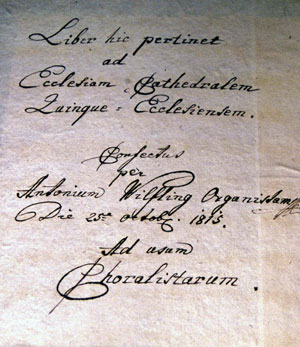 Liber hic pertinet
ad
Ecclesiam Cathedralem
Quinque-Ecclesiensem.
Confectus
per
Antonium Wilfling Organistam
Die 25a octob. 1815.
Ad usum
Choralistarum.